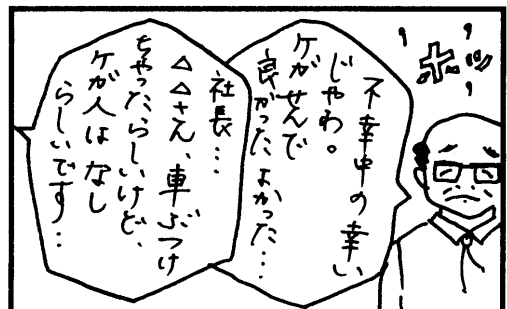 ホッ
不幸中の幸い
じゃわ。
ケがせんで
良かったよかった…
社長…
△△さん、車ぶつけ
ちゃったらしいけど、
ケが人はなし
らしいです…